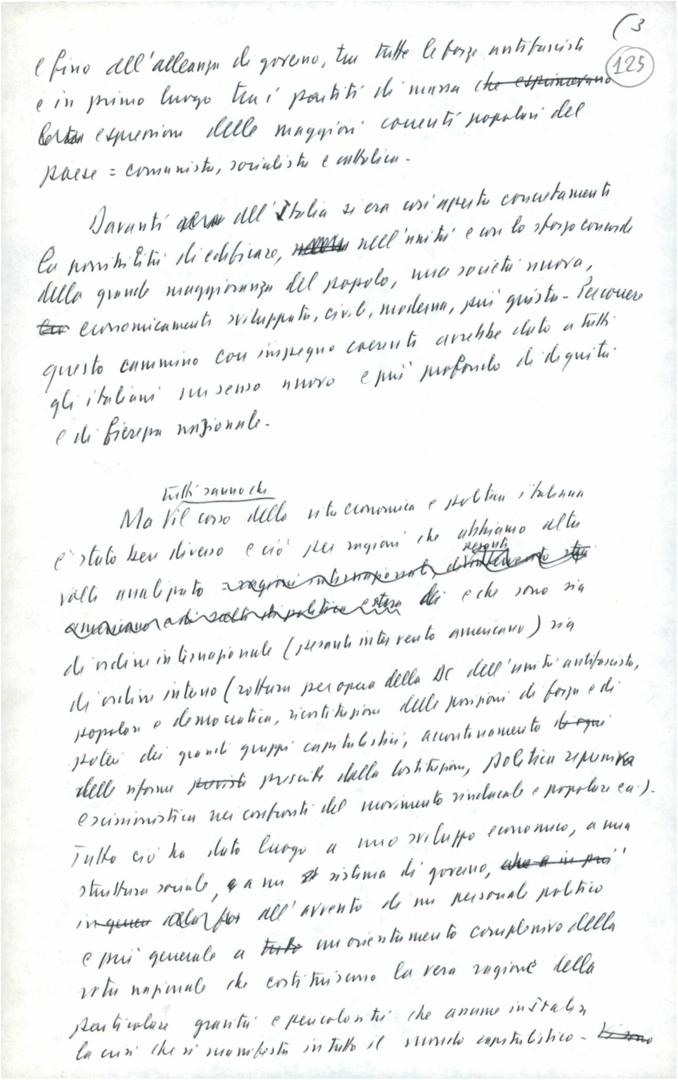 (3
125
e fino all'alleanza di governo, tra tutte le forze antifasciste
e in primo luogo tra i partiti di massa che esprimevano
espressione delle maggiori correnti popolari del
paese = comunista, socialista e cattolica.
Davanti all'Italia si era così aperta concretamente
la possibilità di edificare, nell'unità e con lo sforzo concorde
della grande maggioranza del popolo, una società nuova,
economicamente sviluppata, civile, moderna, più giusta. Percorrere
questo cammino con impegno coerente avrebbe dato a tutti
gli italiani un senso nuovo e più profondo di dignità
e di fierezza nazionale.
tutti sanno che
Ma il corso della vita economica e politica italiana
è stato ben diverso e ciò per ragioni che abbiamo altre
pesante
volte analizzato ragioni internazionali, intervento
americano di politica estera e che sono sia
di ordine internazionale (pesante intervento americano) sia
di ordine interno (rottura per opera della DC dell'unità antifascista,
popolare e democratica, ricostituzione delle posizioni di forza e di
potere dei grandi gruppi capitalistici, accantonamento di ogni
delle riforme previste prescritte dalla Costituzione, politica repressiva
e scissionistica nei confronti del movimento sindacale e popolare ecc.).
Tutto ciò ha dato luogo a uno sviluppo economico, a una
struttura sociale, e a un sistema di governo, che e in più
in genere all'avvento di un personale politico
e più generale a tutto un orientamento complessivo della
vita nazionale che costituiscono la vera ragione della
particolare gravità e pericolosità che assume in Italia
la crisi che si manifesta in tutto il mondo capitalistico.